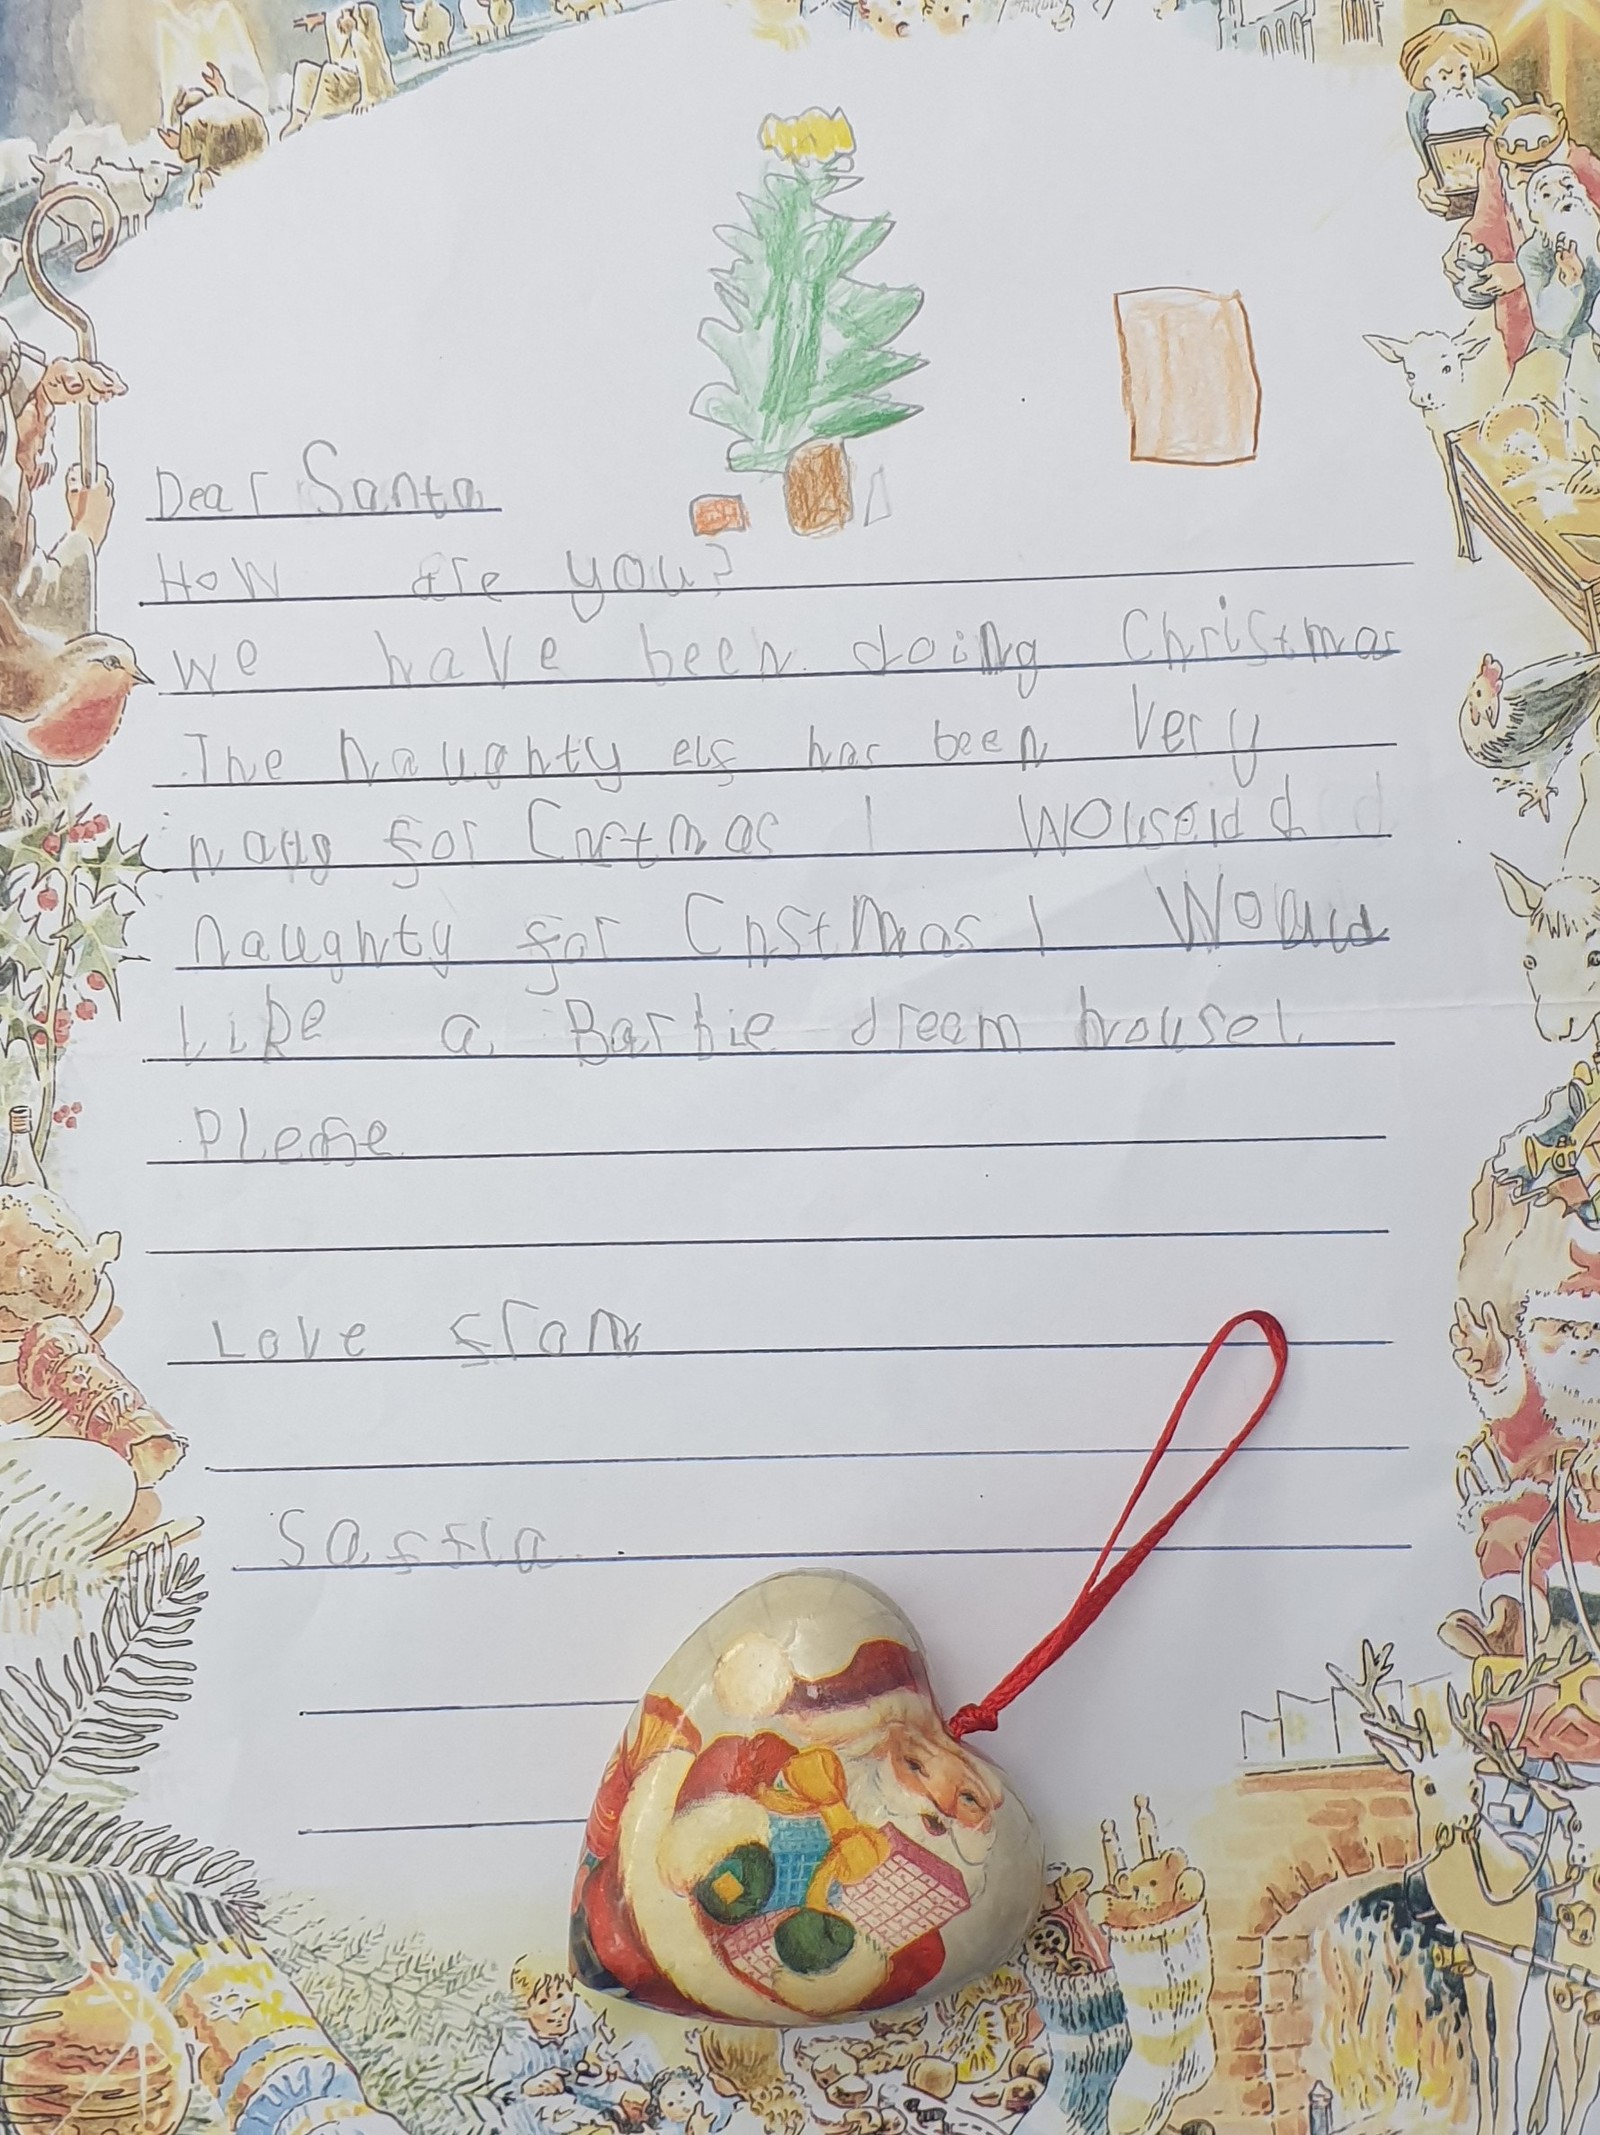 Dear Santa
How are you?
we have been doing Christmas
The naughty elf has been very
naug for Crstmas I
naughty for Cristmas I Would
Like a Barbie dream house
Please
Love from
Saffia